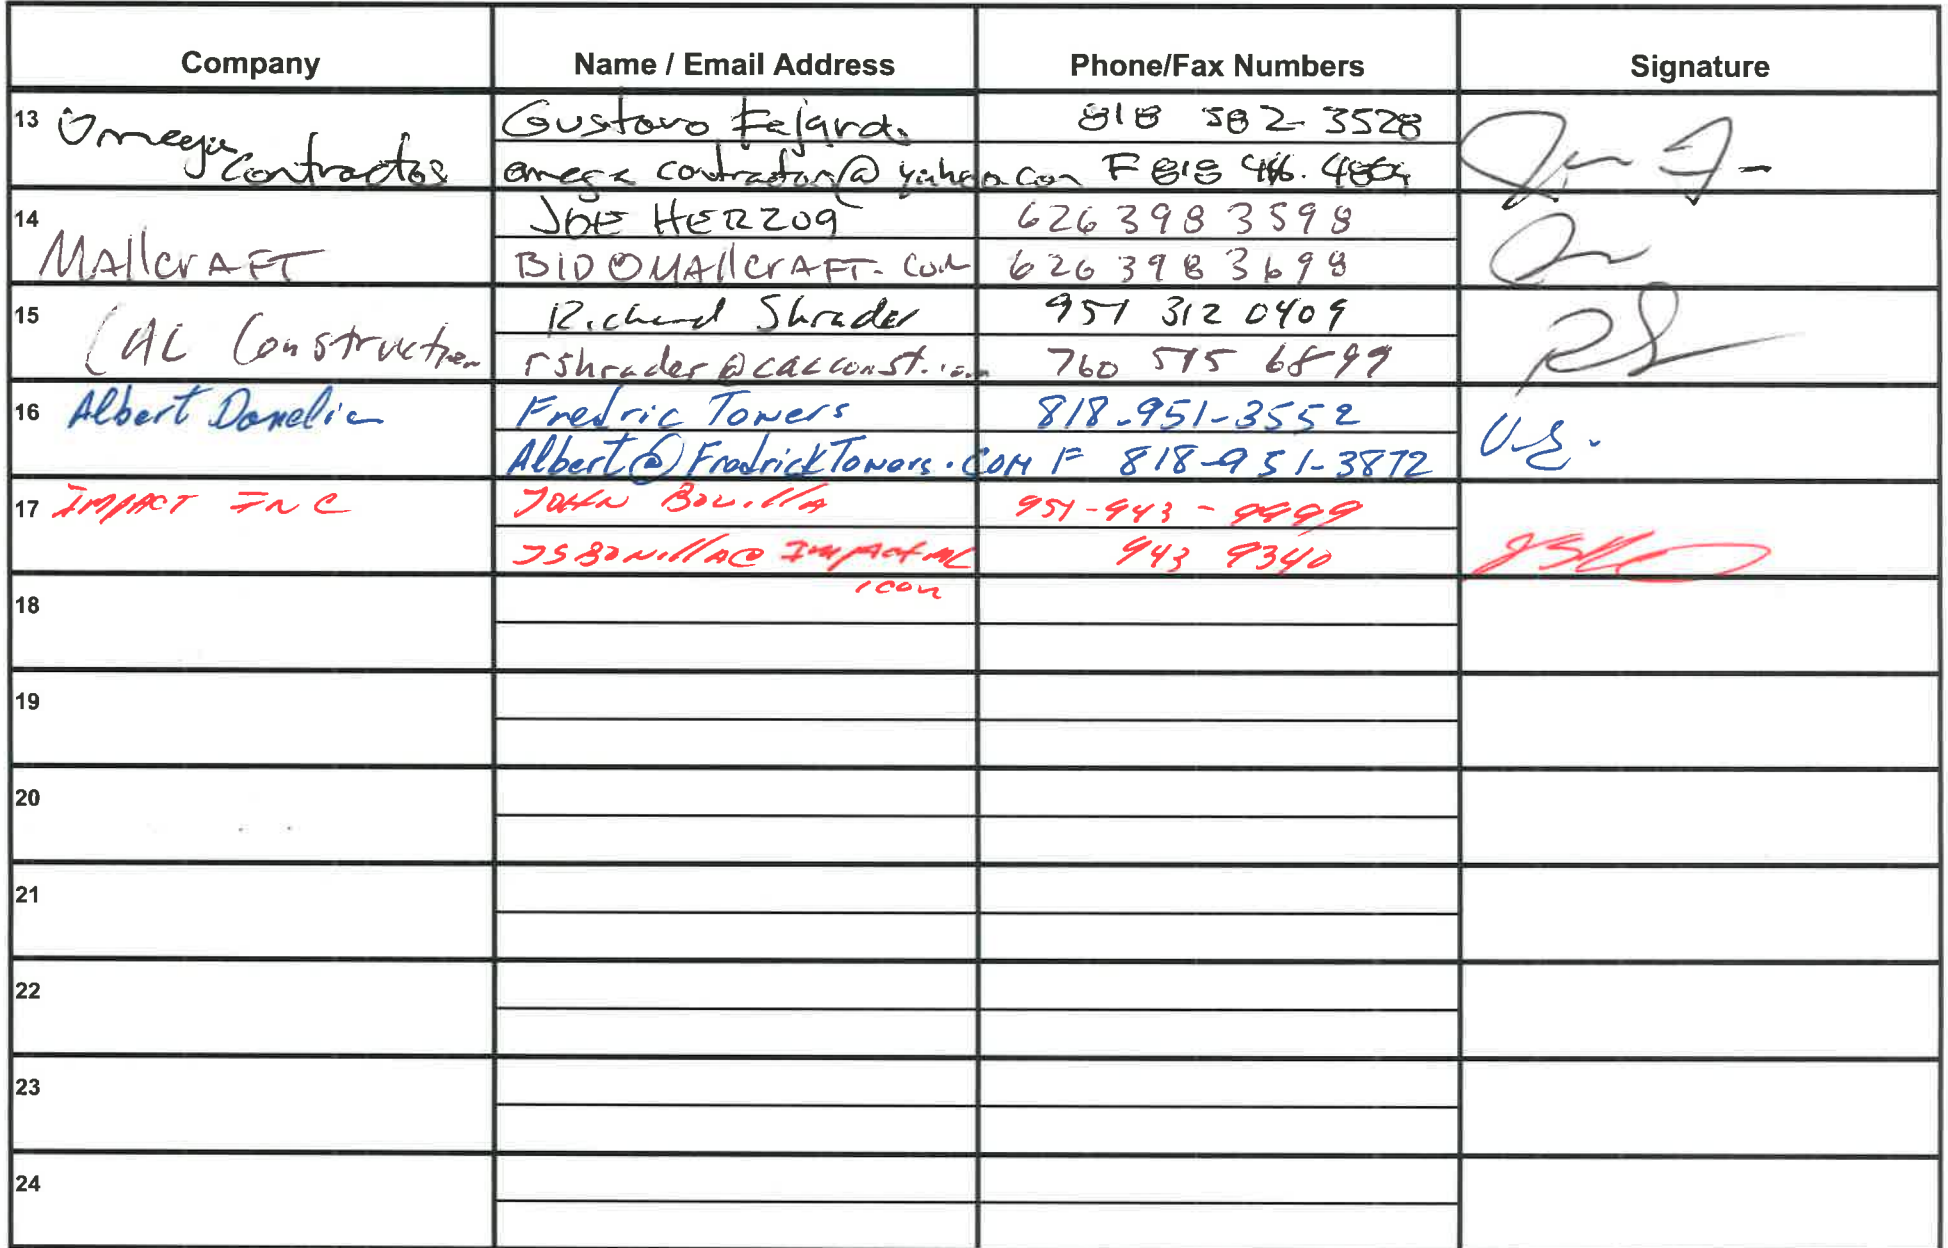 Company Name / Email Address Phone/Fax Numbers Signature
13 Omega Contractos Gustavo Fajardo 818 582-3528
omega contractors@yahoo.com F 818
14 Mallcraft JOE HERZOG 626 398 3598
BID@MAllcrAFT.com 626 398 3698
15 CAL Construction Richard Shrader 951 312 0409
rshrader@calconst.com 760 515 6899
16 Albert Danelia Fredric Towers 818-951-3552
Albert@FredrickTowers.COM F 818-951-3872
17 IMPACT INC JOHN Bonilla 951-943-9999
JSBonilla@ 943 9340
.com
18
19
20
21
22
23
24